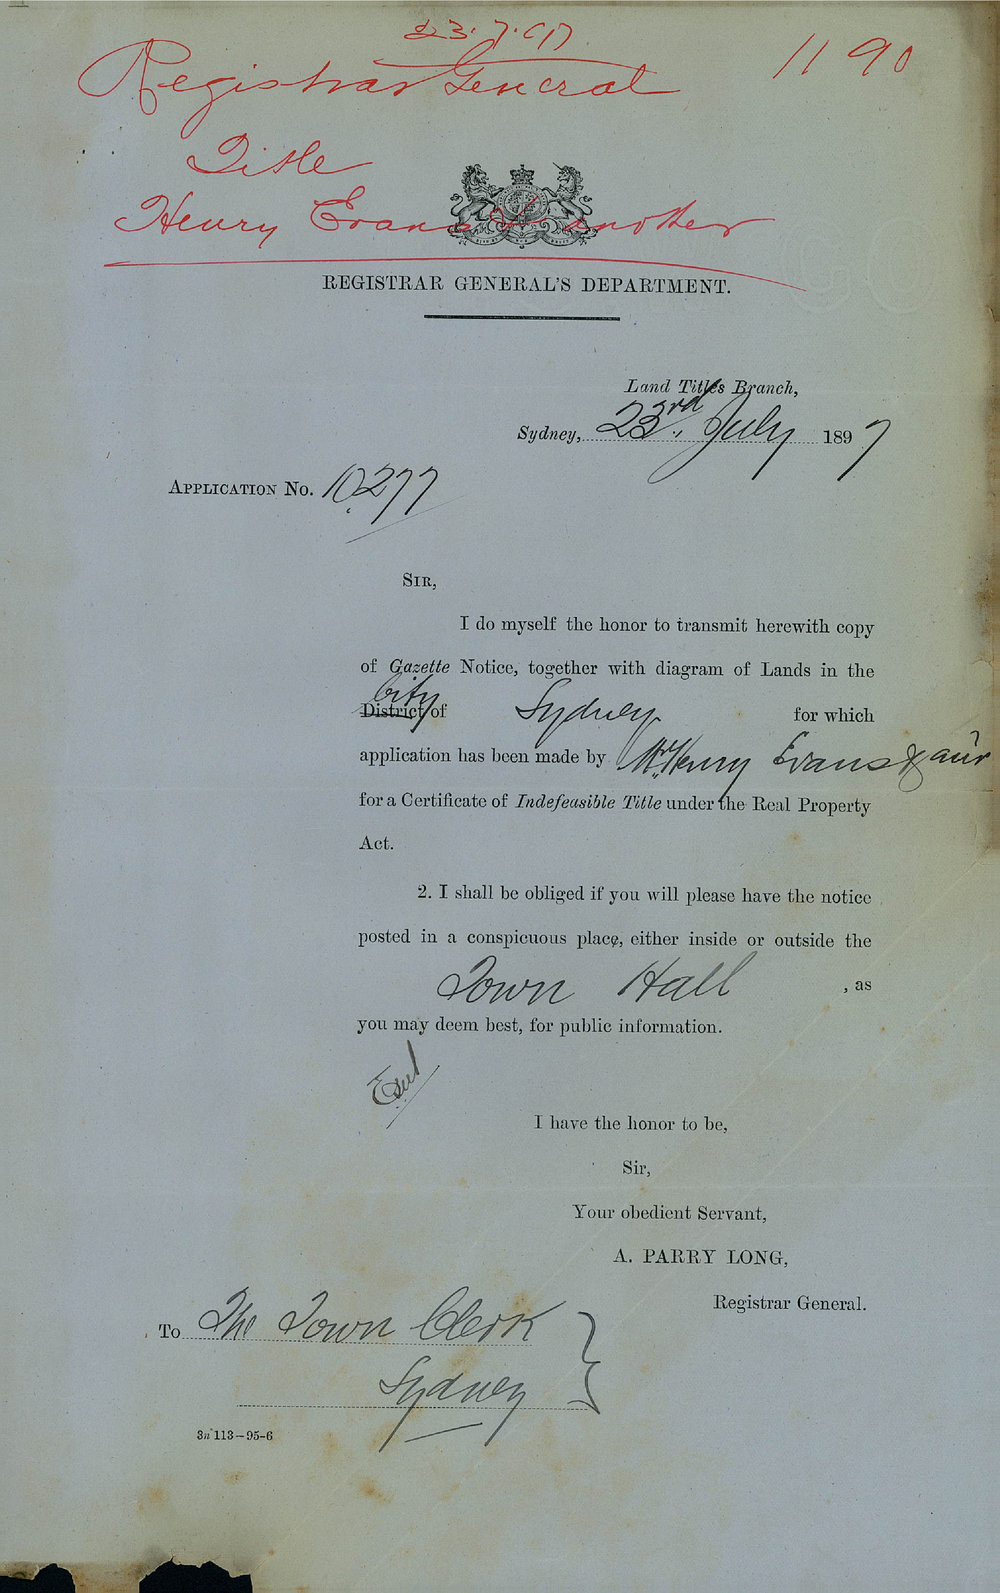 23.7.97
1190
Registrar General
Title
Henry Evans & another
REGISTRAR GENERAL'S DEPARTMENT.
Land Titles Branch,
Sydney, 23rd July 1897
APPLICATION NO. 10277
SIR,
I do myself the honor to transmit herewith copy
of Gazette Notice, together with diagram of Lands in the
City
District of Sydney for which
application has been made by Mr. Henry Evans & anr
for a Certificate of Indefeasible Title under the Real Property
Act.
2. I shall be obliged if you will please have the notice
posted in a conspicuous place, either inside or outside the
Town Hall, as
you may deem best, for public information.
I have the honor to be,
Sir,
Your obedient Servant,
A. PARRY LONG,
Registrar General.
To The Town Clerk
Sydney
3n 113–95–6